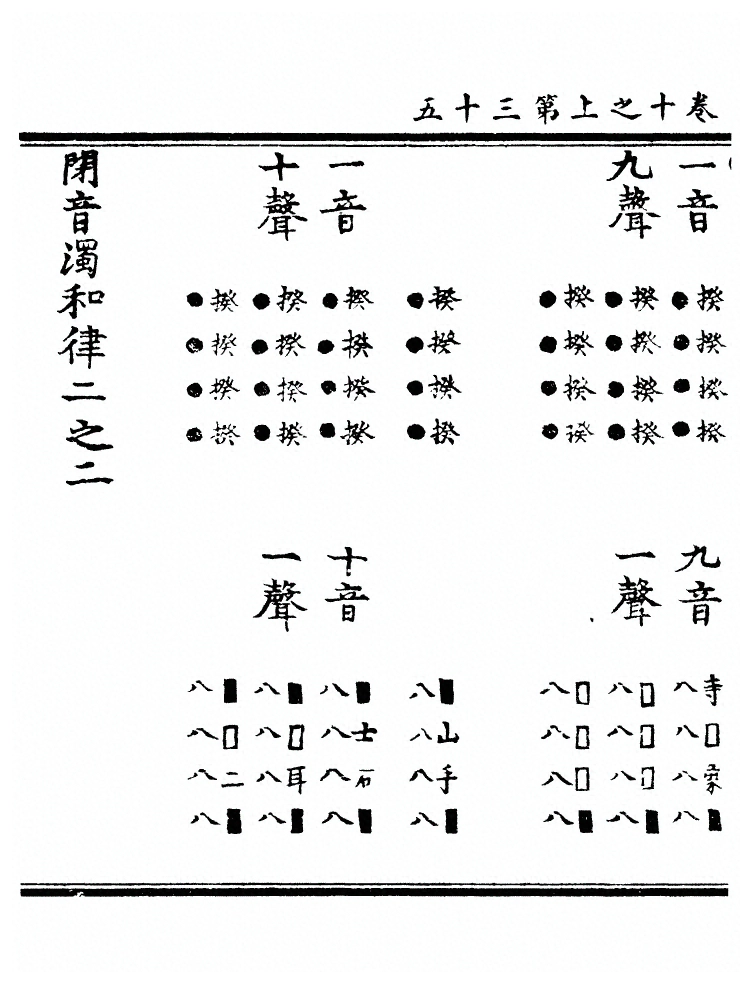 卷十之上第三十五
一音
九聲
揆揆揆揆
●●●●
揆揆揆揆
●●●●
揆揆揆揆
●●●●
九音
一聲
寺□象■
八八八八
□□□■
八八八八
□□□■
八八八八
揆揆揆揆
●●●●
一音
十聲
揆揆揆揆
●●●●
揆揆揆揆
●●●●
揆揆揆揆
●●●●
■山手■
八八八八
十音
一聲
■士石■
八八八八
■□耳■
八八八八
■□二■
八八八八
閉音濁和律二之二